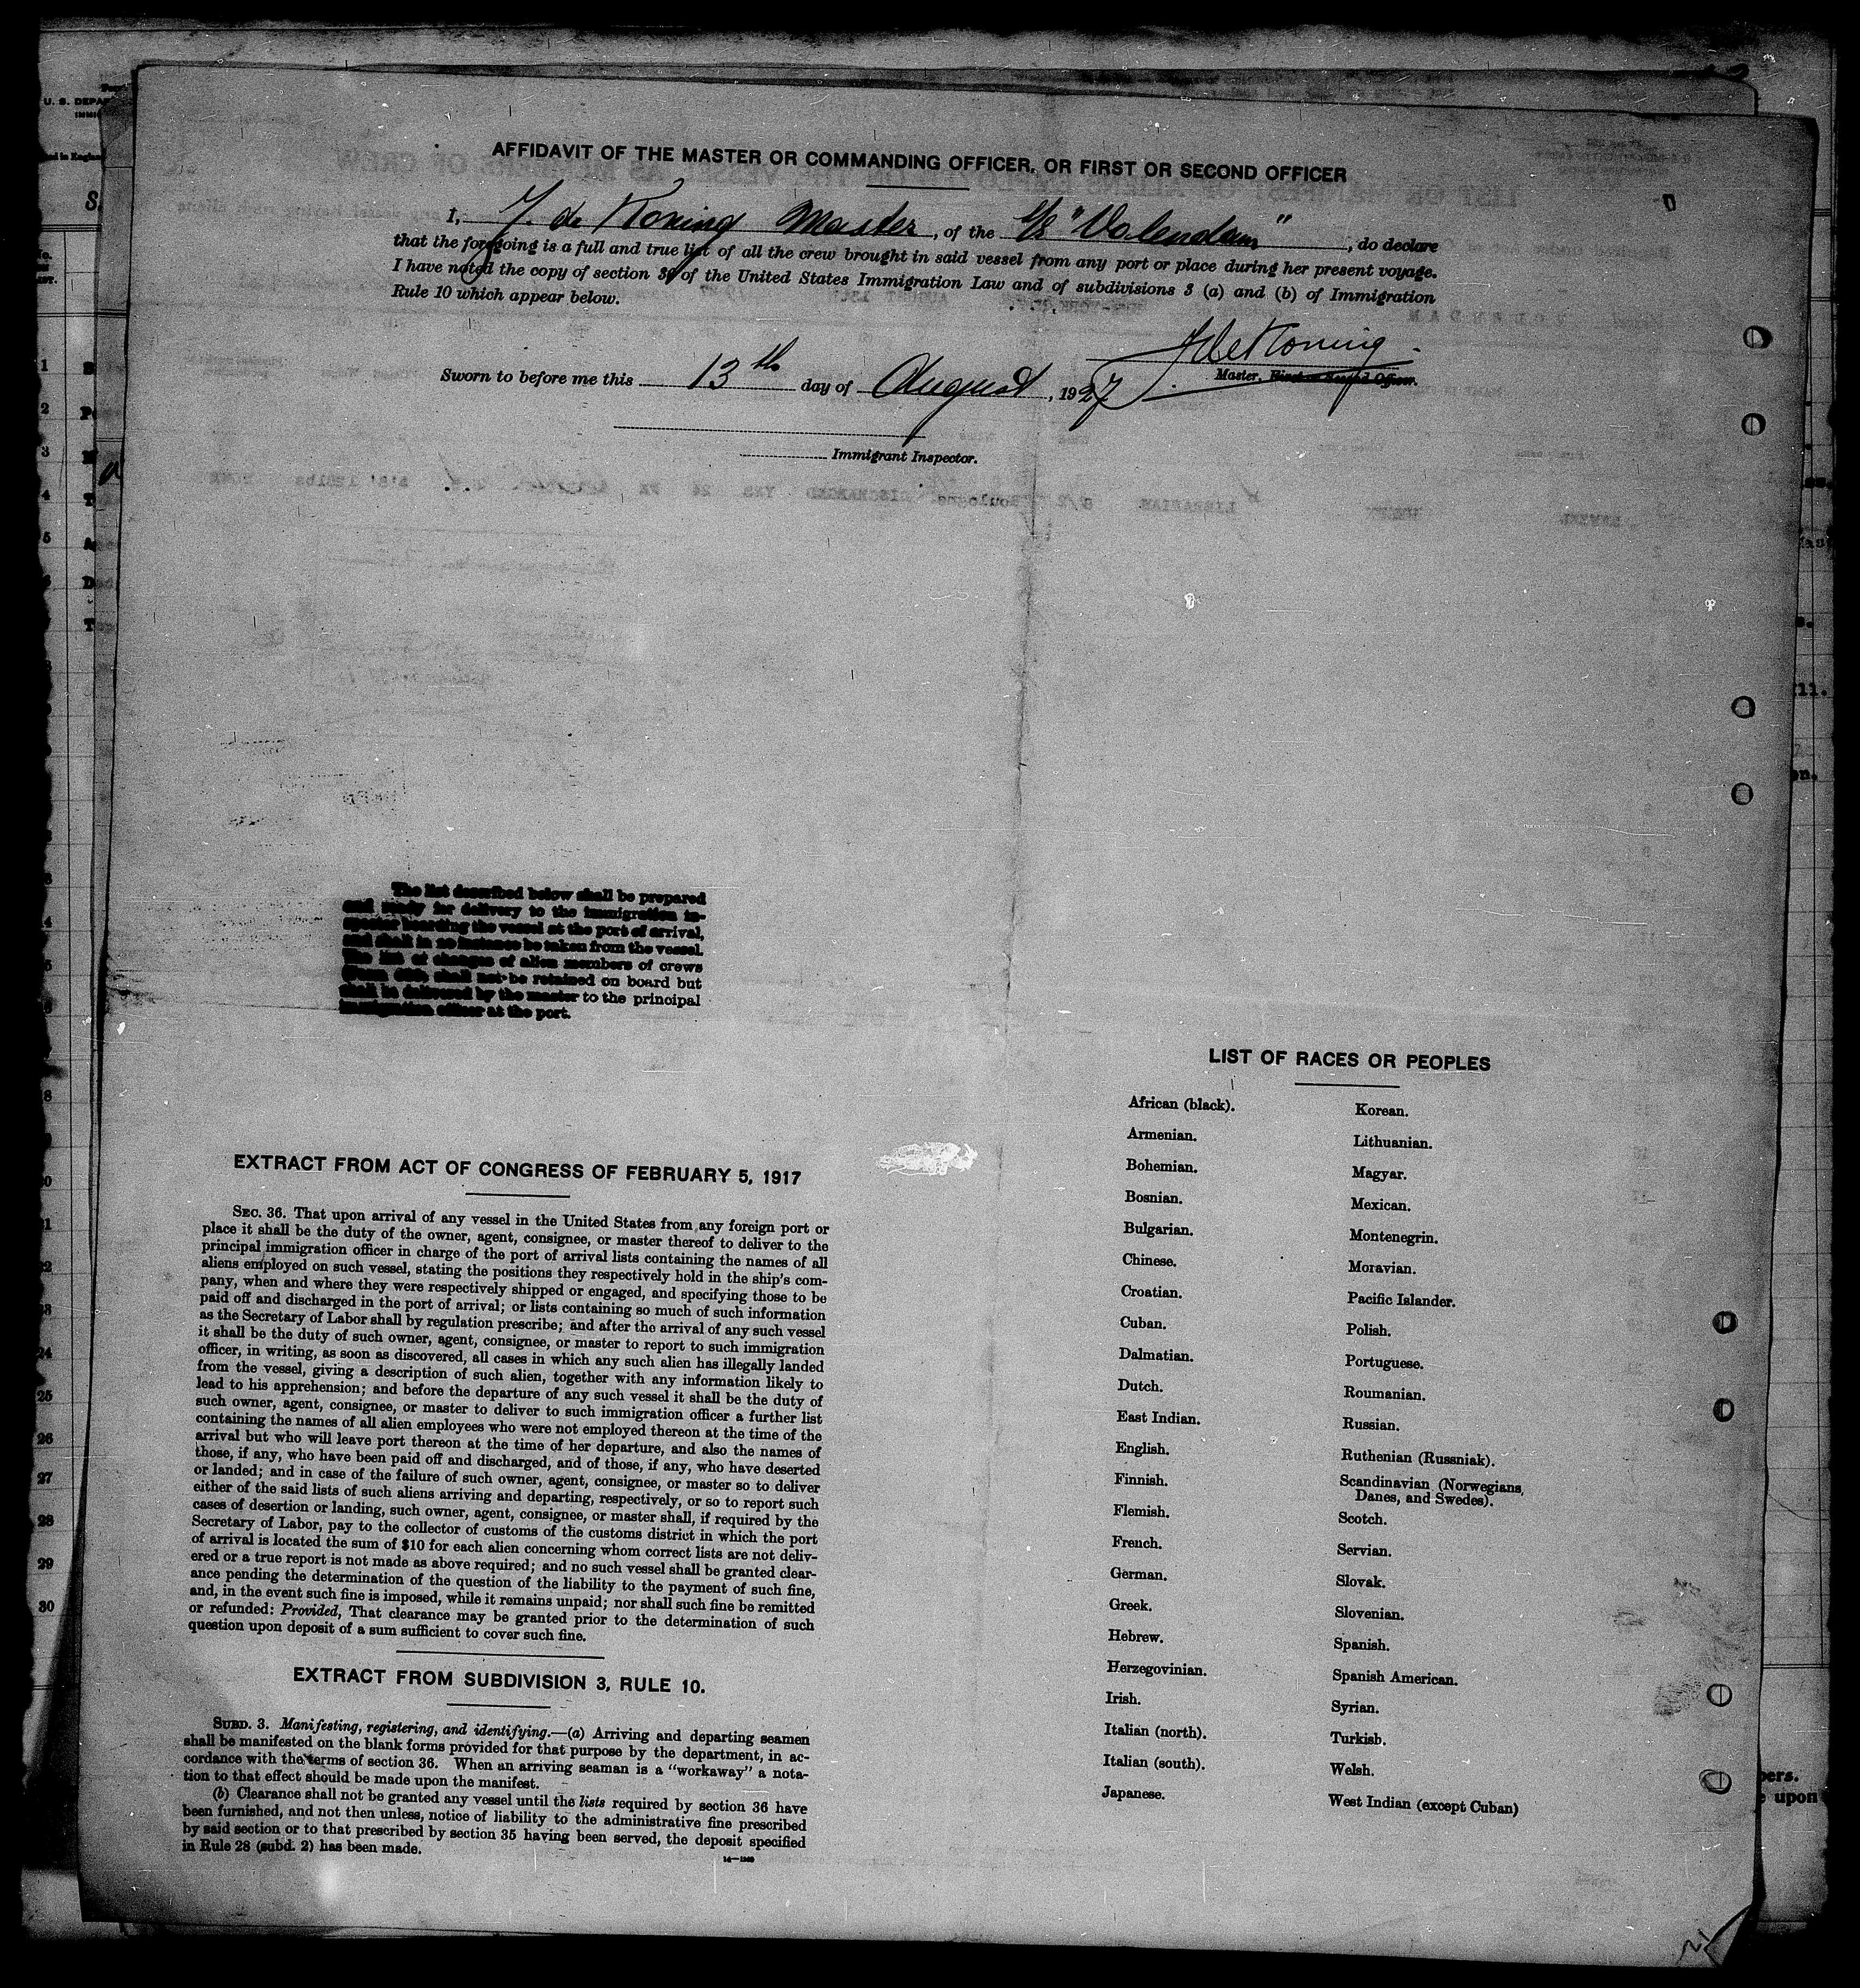 AFFIDAVIT OF THE MASTER OR COMMANDING OFFICER, OR FIRST OR SECOND OFFICER
I, J. de Koning Master, of the S/S "Volendam", do declare
that the foregoing is a full and true list of all the crew brought in said vessel from any port or place during her present voyage.
I have noted the copy of section 36 of the United States Immigration Law and of subdivisions 3 (a) and (b) of Immigration
Rule 10 which appear below.
JdeKoning.
Master, First or Second Officer.
Sworn to before me this 13th day of August, 1927
Immigrant Inspector.
The list described below shall be prepared
and ready for delivery to the immigration in-
spector boarding the vessel at the port of arrival,
and shall in no instance be taken from the vessel.
The list of changes of alien members of crews
shall not be retained on board but
shall be delivered by the master to the principal
immigration officer at the port.
EXTRACT FROM ACT OF CONGRESS OF FEBRUARY 5, 1917
SEC. 36. That upon arrival of any vessel in the United States from any foreign port or
place it shall be the duty of the owner, agent, consignee, or master thereof to deliver to the
principal immigration officer in charge of the port of arrival lists containing the names of all
aliens employed on such vessel, stating the positions they respectively hold in the ship's com-
pany, when and where they were respectively shipped or engaged, and specifying those to be
paid off and discharged in the port of arrival; or lists containing so much of such information
as the Secretary of Labor shall by regulation prescribe; and after the arrival of any such vessel
it shall be the duty of such owner, agent, consignee, or master to report to such immigration
officer, in writing, as soon as discovered, all cases in which any such alien has illegally landed
from the vessel, giving a description of such alien, together with any information likely to
lead to his apprehension; and before the departure of any such vessel it shall be the duty of
such owner, agent, consignee, or master to deliver to such immigration officer a further list
containing the names of all alien employees who were not employed thereon at the time of the
arrival but who will leave port thereon at the time of her departure, and also the names of
those, if any, who have been paid off and discharged, and of those, if any, who have deserted
or landed; and in case of the failure of such owner, agent, consignee, or master so to deliver
either of the said lists of such aliens arriving and departing, respectively, or so to report such
cases of desertion or landing, such owner, agent, consignee, or master shall, if required by the
Secretary of Labor, pay to the collector of customs of the customs district in which the port
of arrival is located the sum of $10 for each alien concerning whom correct lists are not deliv-
ered or a true report is not made as above required; and no such vessel shall be granted clear-
ance pending the determination of the question of the liability to the payment of such fine,
and, in the event such fine is imposed, while it remains unpaid; nor shall such fine be remitted
or refunded: Provided, That clearance may be granted prior to the determination of such
question upon deposit of a sum sufficient to cover such fine.
EXTRACT FROM SUBDIVISION 3, RULE 10.
SUBD. 3. Manifesting, registering, and identifying.—(a) Arriving and departing seamen
shall be manifested on the blank forms provided for that purpose by the department, in ac-
cordance with the terms of section 36. When an arriving seaman is a "workaway" a nota-
tion to that effect should be made upon the manifest.
(b) Clearance shall not be granted any vessel until the lists required by section 36 have
been furnished, and not then unless, notice of liability to the administrative fine prescribed
by said section or to that prescribed by section 35 having been served, the deposit specified
in Rule 28 (subd. 2) has been made.
LIST OF RACES OR PEOPLES
African (black).
Armenian.
Bohemian.
Bosnian.
Bulgarian.
Chinese.
Croatian.
Cuban.
Dalmatian.
Dutch.
East Indian.
English.
Finnish.
Flemish.
French.
German.
Greek.
Hebrew.
Herzegovinian.
Irish.
Italian (north).
Italian (south).
Japanese.
Korean.
Lithuanian.
Magyar.
Mexican.
Montenegrin.
Moravian.
Pacific Islander.
Polish.
Portuguese.
Roumanian.
Russian.
Ruthenian (Russniak).
Scandinavian (Norwegians,
Danes, and Swedes).
Scotch.
Servian.
Slovak.
Slovenian.
Spanish.
Spanish American.
Syrian.
Turkish.
Welsh.
West Indian (except Cuban)